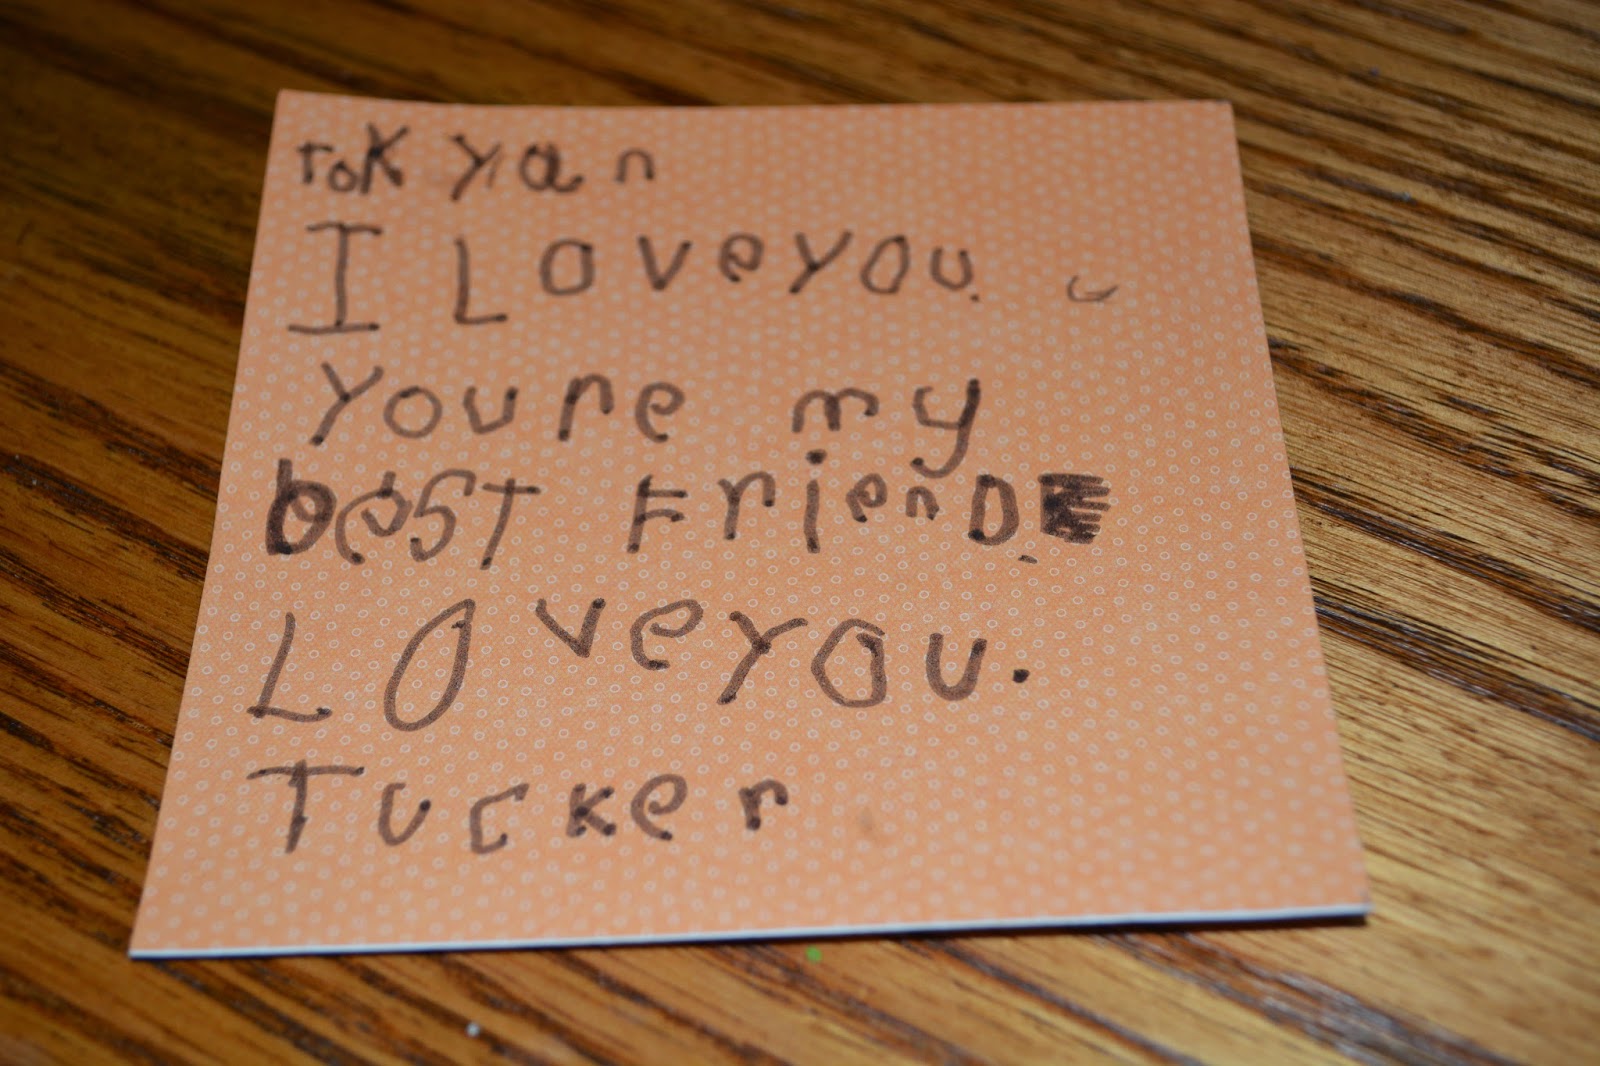 roK yan
I Love you.
Youre my
besT FrienD.
LOve yOu.
Tucker